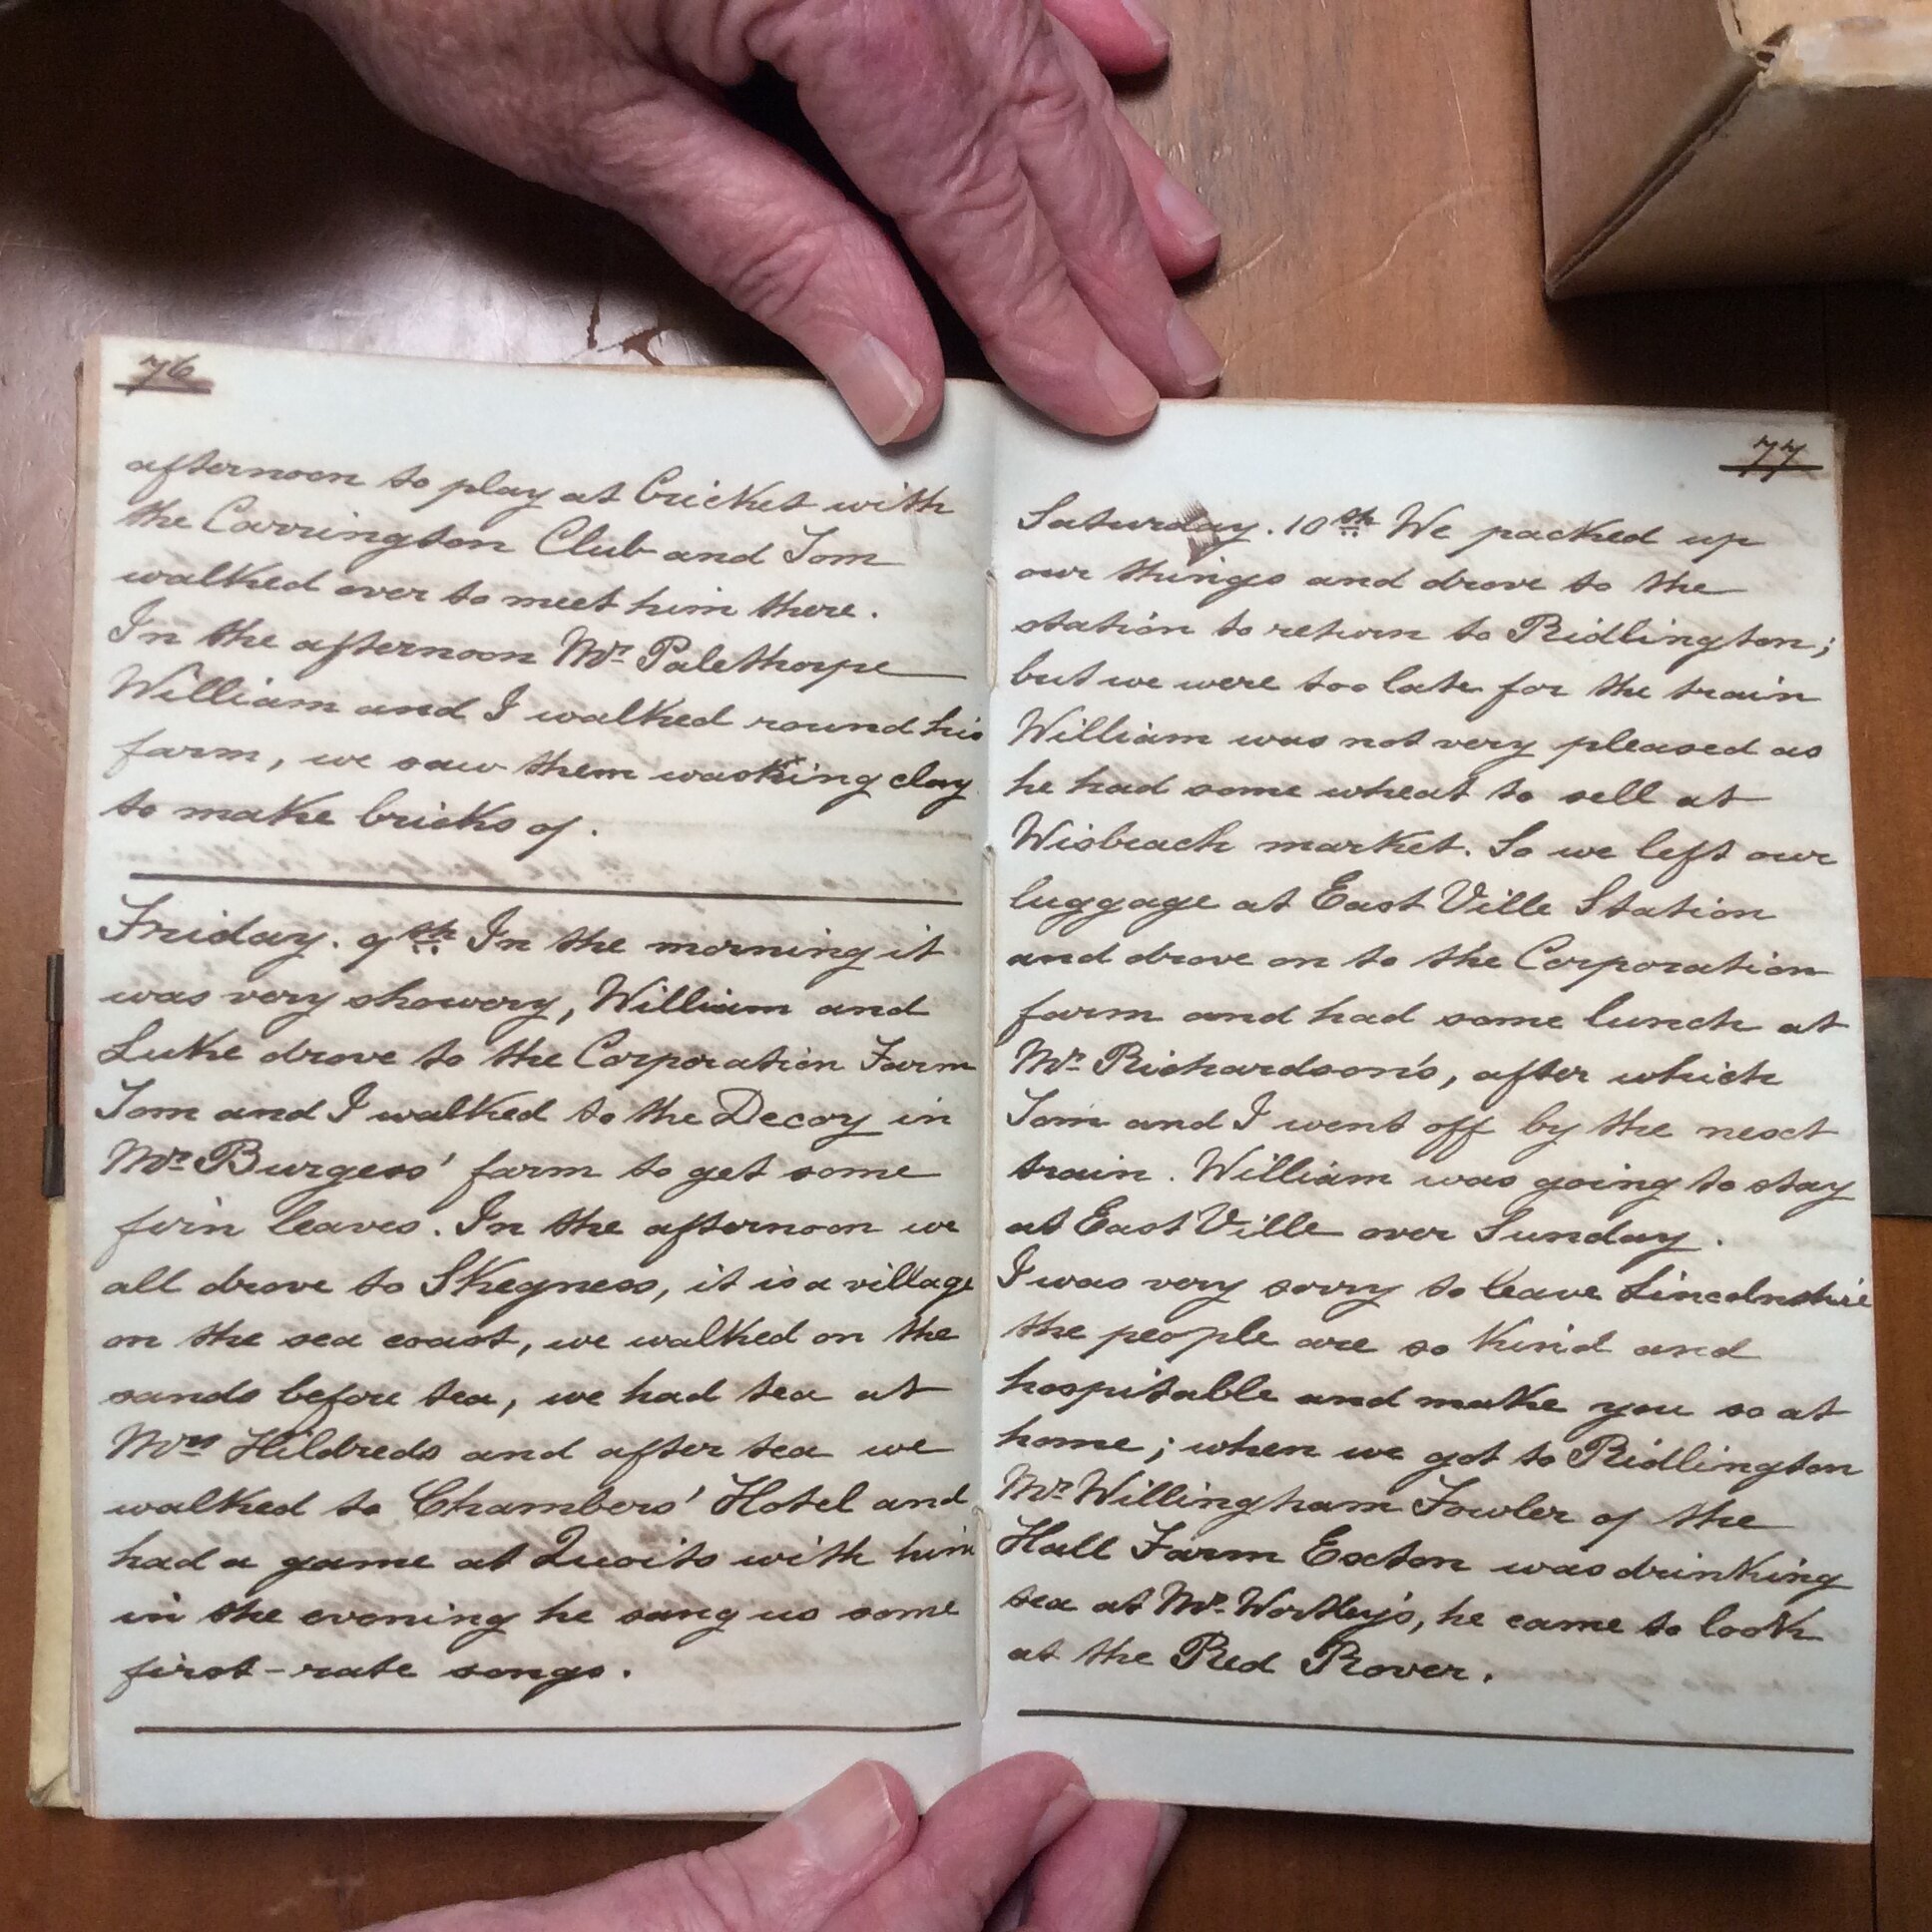 76
afternoon to play at Cricket with
the Carrington Club and Tom
walked over to meet him there.
In the afternoon Mr. Palethorpe
William and I walked round his
farm, we saw them washing clay
to make bricks of.
Friday. 9th. In the morning it
was very showery, William and
Luke drove to the Corporation Farm
Tom and I walked to the Decoy in
Mr. Burgess' farm to get some
firn leaves. In the afternoon we
all drove to Skegness, it is a village
on the sea coast, we walked on the
sands before tea, we had tea at
Mrs Hildreds and after tea we
walked to Chambers' Hotel and
had a game at Quoits with him
in the evening he sang us some
first-rate songs.
77
Saturday. 10th. We packed up
our things and drove to the
station to return to Ridlington;
but we were too late for the train
William was not very pleased as
he had some wheat to sell at
Wisbeach market. So we left our
luggage at East Ville Station
and drove on to the Corporation
farm and had some lunch at
Mr. Richardson's, after which
Tom and I went off by the next
train. William was going to stay
at East Ville over Sunday.
I was very sorry to leave Lincolnshire
the people are so kind and
hospitable and make you so at
home; when we got to Ridlington
Mr. Willingham Fowler of the
Hall Farm Exton was drinking
tea at Mr. Wortley's, he came to look
at the Red Rover.